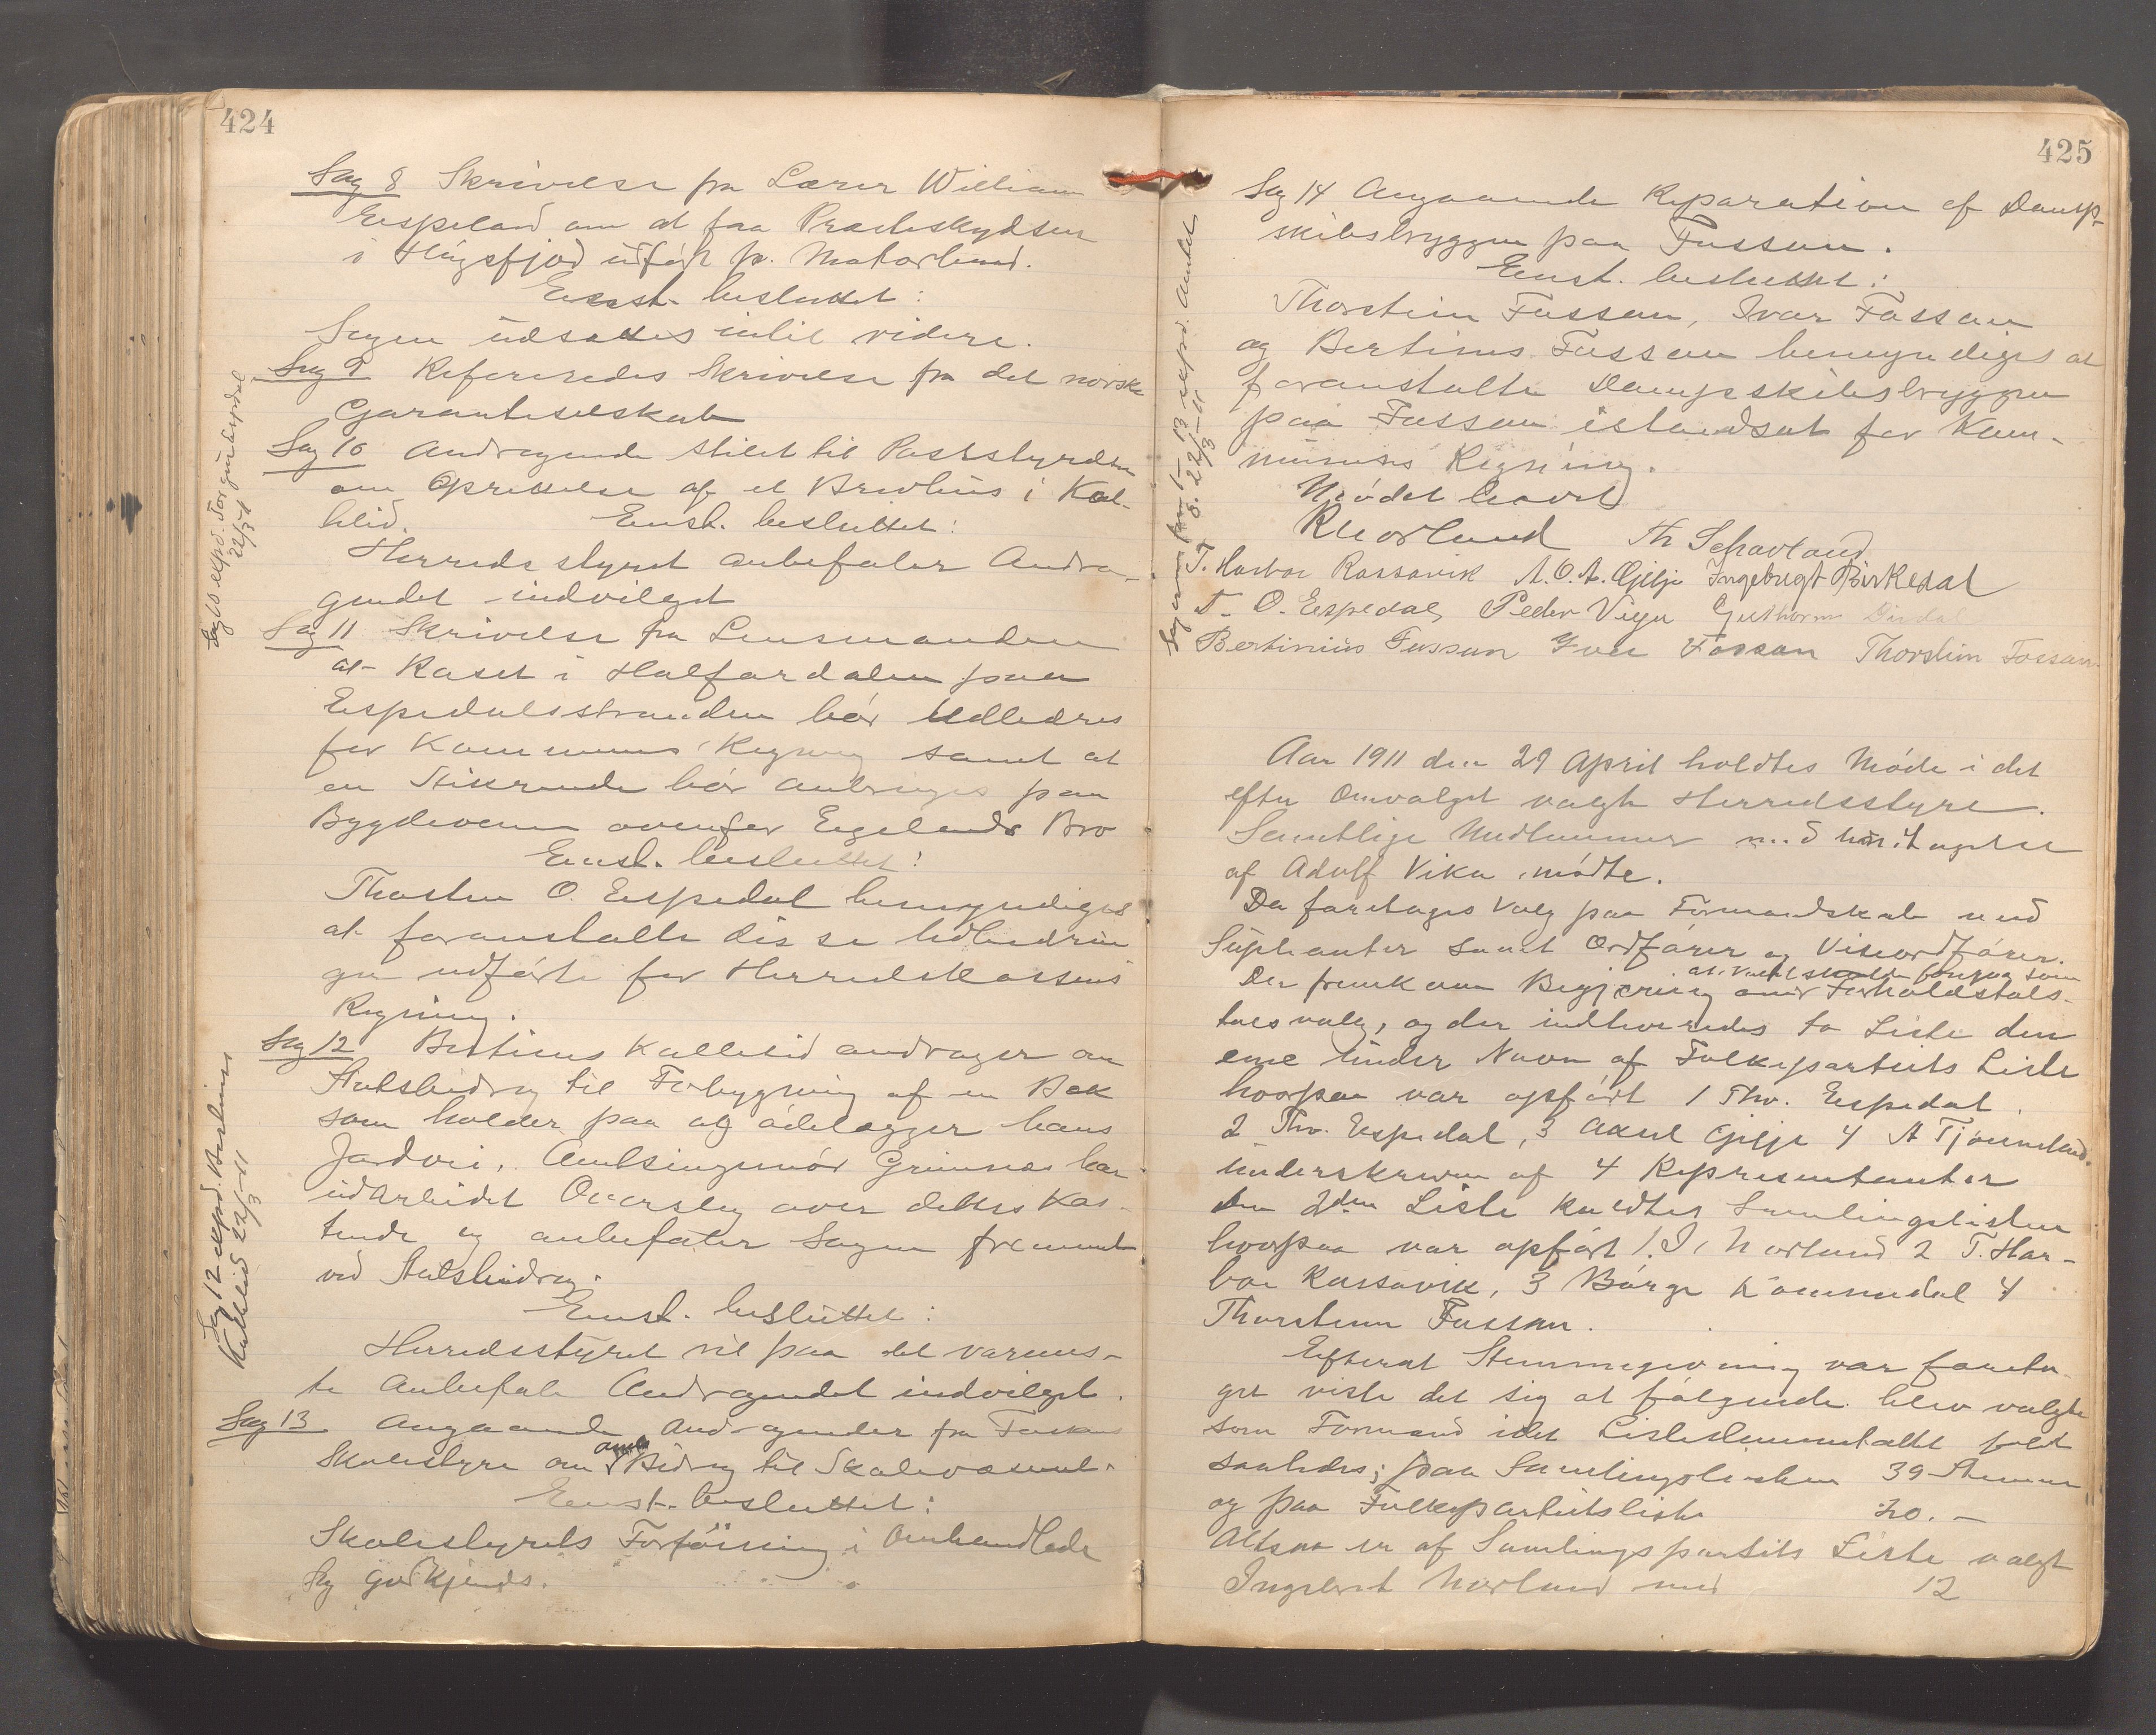 424
Sag 8 Skrivelse fra Lærer William
Eispeland om at faa Præsteskydsen
i Høgsfjord udført pr. Motorbaad.
Eenst. besluttet:
Sagen udsættes indtil videre.
Sag 9 Refereredes Skrivelse fra det norske
Garantiselskab
Sag 10 Andragende stilet til Poststyrelsen
om Oprettelse af et Brevhus i Kal-
lelid. Eenst. besluttet:
Herredsstyret anbefaler Andra-
gendet indvilget
Sag 11 Skrivelse fra Lensmanden
at Raset i Halfardalen paa
Espedalsstranden bør Udbedres
for Kommunens Regning samt at
en Stikrende bør anbringes paa
Bygdeveien ovenfor Eigelands Bro
Eenst. besluttet:
Thorsten O. Espedal bemyndiges
at foranstalte disse Udbedrin
ger udførte for Herredskassens
Regning.
Sag 12 Bertinus Kallelid andrager om
Statsbidrag til Forbygning af en Bæk
som holder paa at ødelægger hans
Jordvei. Amtsingeniør Grimnes har
udarbeidet Overslag over dettes Kos-
tende og anbefaler Sagen fremmet
ved Statsbidrag.
Eenst. besluttet:
Herredsstyret vil paa det varmes-
te anbefale Andragendet indvilget.
Sag 13 Angaaende Andragender fra Fossan
Skolestyre om Amts Bidrag til Skolevæsenet.
Eenst. besluttet:
Skolestyrets Forføining i Omhandlede
Sag godkjendes.
Sag 10 expd. Torguns Byrdal
22/3 11
Sag 12 expd. Bertinus
Kallelid 22/3-11
425
Sag 14 Angaaende Reparation af Damp-
skibsbryggen paa Fossan.
Eenst. besluttet:
Thorstein Fossan, Ivar Fossan
og Bertinus Fossan bemyndiges at
foranstalte Dampskibsbryggen
paa Fossan istandsat for Kom-
munens Regning.
Mødet hævet
R Morland Th Schavland
T. Harboe Rossavik A. O. A. Gilje Ingebrigt Birkedal
T. O. Espedal, Peder Vige Guthorm Dirdal
Bertinius Fossan Iver Fossan Thorstein Fossan
8. 22/3-11.
Aar 1911 den 29 April holdtes Møde i det
efter Omvalget valgte Herredsstyre.
Samtlige Medlemmer med Undtagelse
af Adolf Vika mødte.
Da foretages Valg paa Formandskab med
Suplianter samt Ordfører og Viseordfører.
at Valget skulde foregaa som
Der fremkom Begjæring om Forholdstals-
talsvalg, og der indleveredes to Liste den
ene under Navn af Folkepartiets Liste
hvorpaa var opført 1 Thv. Espedal.
2 Thv. Espedal, 3 Aksel Gilje 4 A Tjørneland.
Underskreven af 4 Repræsentanter
den 2den Liste kaldtes Samlingslisten
hvorpaa var opført 1. I. Norland 2 T. Har-
boe Rossavik, 3 Børge Kommedal 4
Thorstenn Fossan.
Efterat Stemmegivning var foreta-
get viste det sig at følgende blev valgte
som Formænd idet Listestemmetallet faldt
saaledes; paa Samlingslisten 39 Stemmer
og paa Folkepartietsliste 20. -
Altsaa er af Samlingspartiets Liste valgt
Ingebret Norland med 12